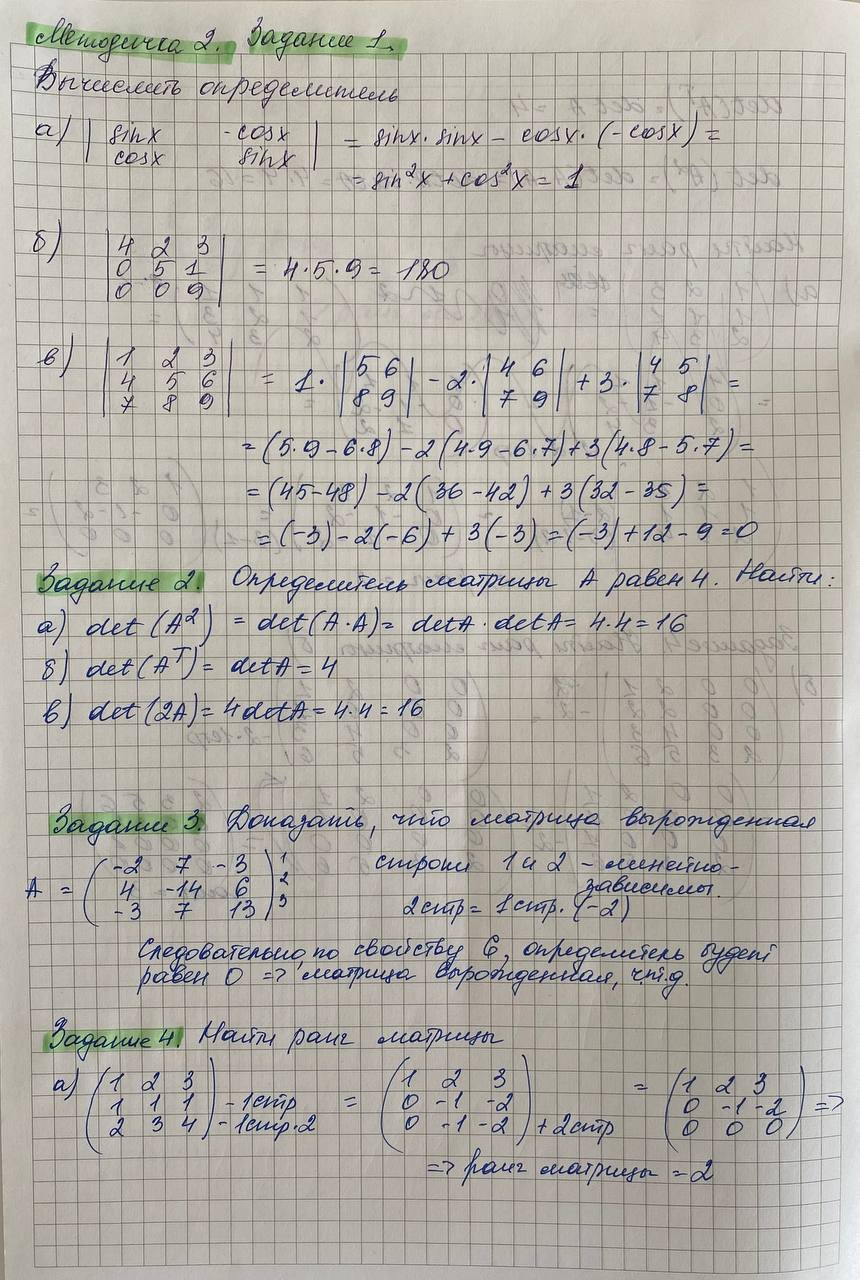 Методичка 2. Задание 1.
Вычислить определитель
а) | sinx -cosx | = sinx·sinx - cosx·(-cosx) =
| cosx sinx |
= sin²x + cos²x = 1
б) | 4 2 3 |
| 0 5 1 | = 4·5·9 = 180
| 0 0 9 |
в) | 1 2 3 |
| 4 5 6 | = 1· | 5 6 | - 2· | 4 6 | + 3· | 4 5 | =
| 7 8 9 | | 8 9 | | 7 9 | | 7 8 |
= (5·9 - 6·8) - 2(4·9 - 6·7) + 3(4·8 - 5·7) =
= (45-48) - 2(36-42) + 3(32-35) =
= (-3) - 2(-6) + 3(-3) = (-3) + 12 - 9 = 0
Задание 2. Определитель матрицы А равен 4. Найти:
а) det(A²) = det(A·A) = detA·detA = 4·4 = 16
б) det(Aᵀ) = detA = 4
в) det(2A) = 4detA = 4·4 = 16
Задание 3. Доказать, что матрица вырожденная
A = ( -2 7 -3 ) 1 строки 1 и 2 - линейно-
( 4 -14 6 ) 2 зависимы.
( -3 7 13 ) 3 2стр = 1стр·(-2)
Следовательно, по свойству 6, определитель будет
равен 0 => матрица вырожденная, ч.т.д.
Задание 4. Найти ранг матрицы
а) ( 1 2 3 ) ( 1 2 3 ) = ( 1 2 3 )
( 1 1 1 ) - 1стр = ( 0 -1 -2 ) ( 0 -1 -2 ) =>
( 2 3 4 ) - 1стр·2 ( 0 -1 -2 ) + 2стр ( 0 0 0 )
=> ранг матрицы = 2